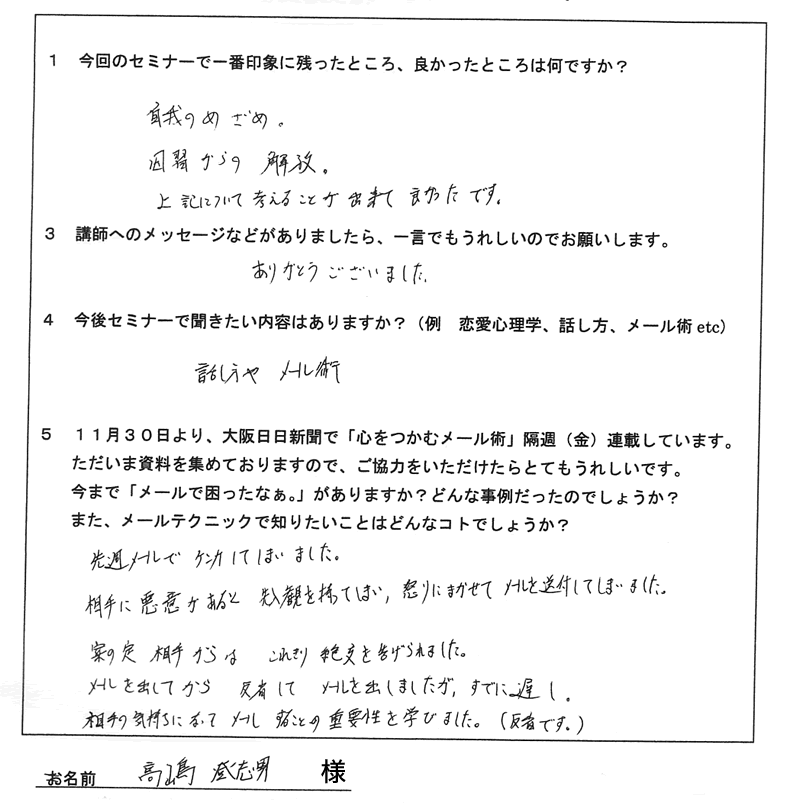 1　今回のセミナーで一番印象に残ったところ、良かったところは何ですか？
自我のめざめ。
因習からの解放。
上記について考えることが出来て良かったです。
3　講師へのメッセージなどがありましたら、一言でもうれしいのでお願いします。
ありがとうございました。
4　今後セミナーで聞きたい内容はありますか？（例　恋愛心理学、話し方、メール術 etc）
話し方や メール術
5　１１月３０日より、大阪日日新聞で「心をつかむメール術」隔週（金）連載しています。
ただいま資料を集めておりますので、ご協力をいただけたらとてもうれしいです。
今まで「メールで困ったなぁ。」がありますか？どんな事例だったのでしょうか？
また、メールテクニックで知りたいことはどんなコトでしょうか？
先週メールでケンカしてしまいました。
相手に悪意があると先入観を持ってしまい，怒りにまかせてメールを送付してしまいました。
案の定 相手からは これきり絶交を告げられました。
メールを出してから 反省して メールを出しましたが，すでに遅し．
相手の気持ちになってメールすることの重要性を学びました。（反省です。）
お名前　高嶋 登志男　様